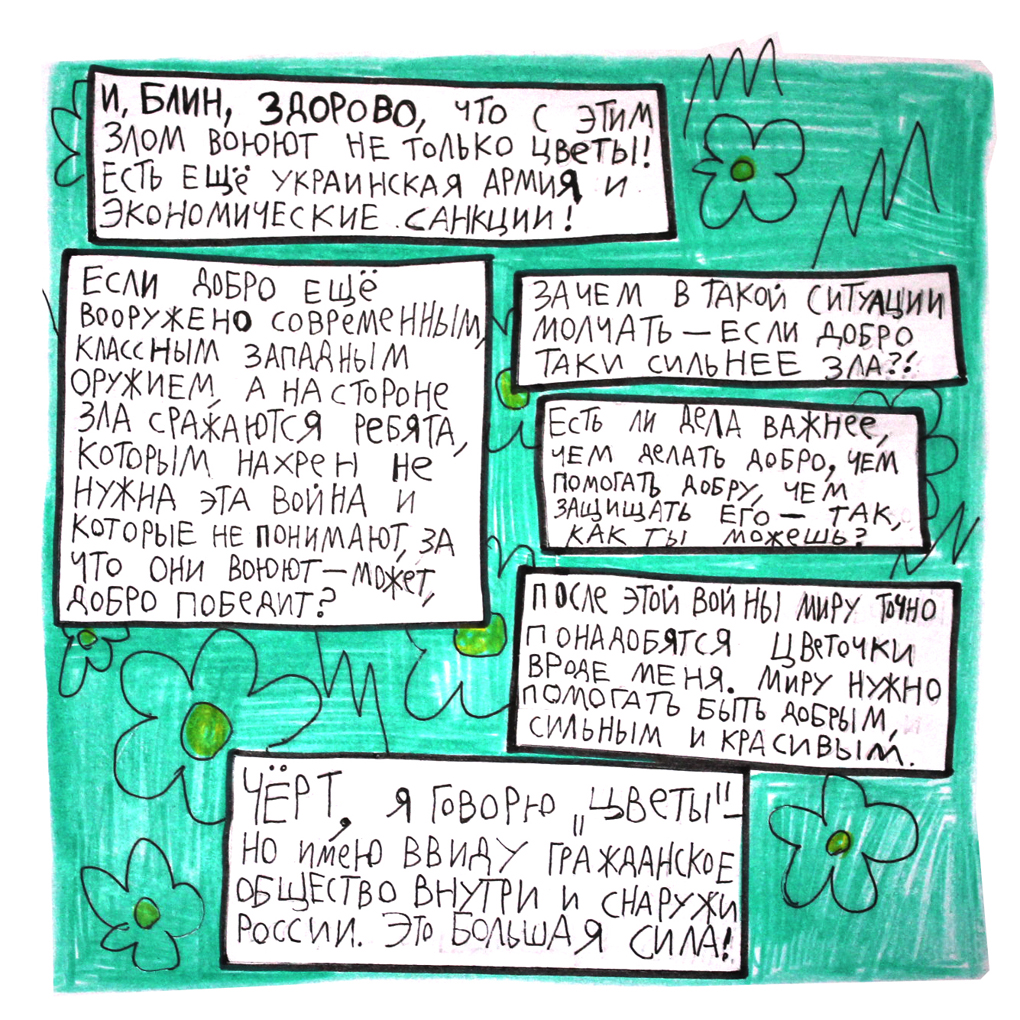 И, БЛИН, ЗДОРОВО, ЧТО С ЭТИМ
ЗЛОМ ВОЮЮТ НЕ ТОЛЬКО ЦВЕТЫ!
ЕСТЬ ЕЩЁ УКРАИНСКАЯ АРМИЯ И
ЭКОНОМИЧЕСКИЕ САНКЦИИ!
ЕСЛИ ДОБРО ЕЩЁ
ВООРУЖЕНО СОВРЕМЕННЫМ,
КЛАССНЫМ ЗАПАДНЫМ
ОРУЖИЕМ, А НА СТОРОНЕ
ЗЛА СРАЖАЮТСЯ РЕБЯТА,
КОТОРЫМ НАХРЕН НЕ
НУЖНА ЭТА ВОЙНА И
КОТОРЫЕ НЕ ПОНИМАЮТ, ЗА
ЧТО ОНИ ВОЮЮТ — МОЖЕТ,
ДОБРО ПОБЕДИТ?
ЗАЧЕМ В ТАКОЙ СИТУАЦИИ
МОЛЧАТЬ — ЕСЛИ ДОБРО
ТАКИ СИЛЬНЕЕ ЗЛА?!
ЕСТЬ ЛИ ДЕЛА ВАЖНЕЕ,
ЧЕМ ДЕЛАТЬ ДОБРО, ЧЕМ
ПОМОГАТЬ ДОБРУ, ЧЕМ
ЗАЩИЩАТЬ ЕГО — ТАК,
КАК ТЫ МОЖЕШЬ?
ПОСЛЕ ЭТОЙ ВОЙНЫ МИРУ ТОЧНО
ПОНАДОБЯТСЯ ЦВЕТОЧКИ
ВРОДЕ МЕНЯ. МИРУ НУЖНО
ПОМОГАТЬ БЫТЬ ДОБРЫМ,
СИЛЬНЫМ И КРАСИВЫМ.
ЧЁРТ, Я ГОВОРЮ „ЦВЕТЫ" —
НО ИМЕЮ ВВИДУ ГРАЖДАНСКОЕ
ОБЩЕСТВО ВНУТРИ И СНАРУЖИ
РОССИИ. ЭТО БОЛЬШАЯ СИЛА!